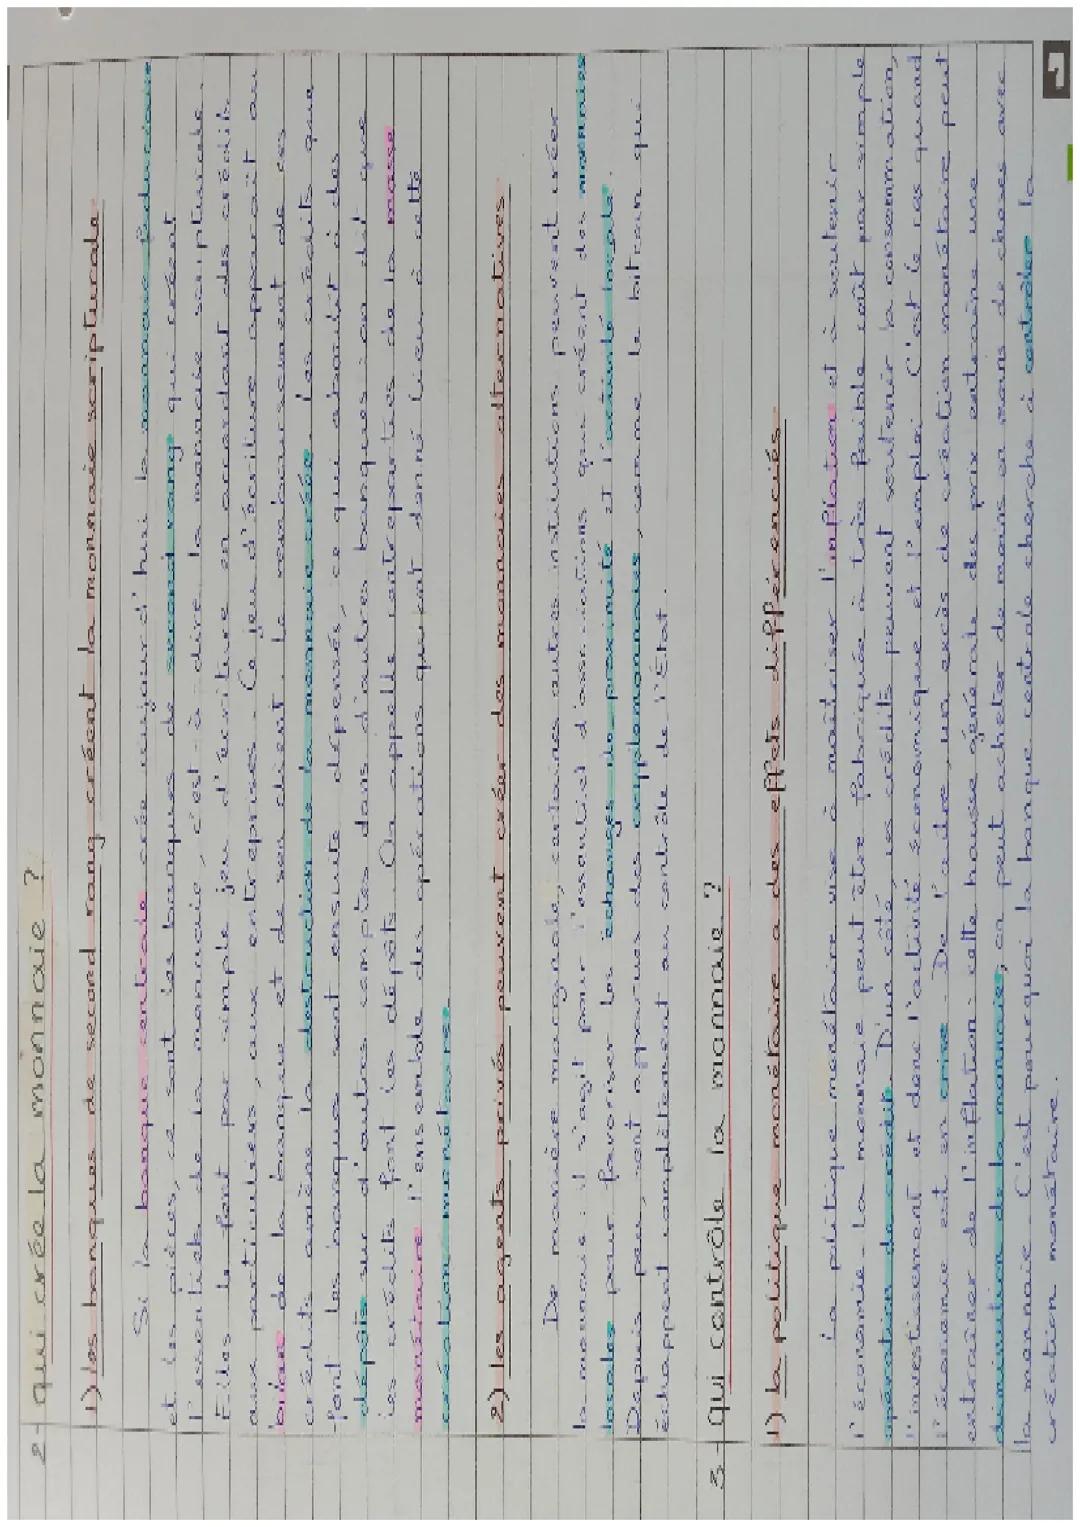 2- qui crée la monnaie ?
1) les banques de second rang créent la monnaie scripturale
Si la banque centrale crée aujourd'hui la monnaie fiduciaire
et les pièces, ce sont les banques de second rang qui créent
l'essentiel de la monnaie, c'est-à-dire la monnaie scripturale.
Elles le font par simple jeu d'écriture en accordant des crédits
aux particuliers, aux entreprises. Ce jeu d'écriture apparaît au
bilan de la banque et de son client. Le remboursement de ces
crédits amène la destruction de la monnaie créée. Les crédits que
font les banques sont ensuite dépensés, ce qui aboutit à des
dépôts sur d'autres comptes dans d'autres banques : on dit que
les crédits font les dépôts. On appelle contreparties de la masse
monétaire l'ensemble des opérations qui ont donné lieu à cette
création monétaire.
2) les agents privés peuvent créer des monnaies alternatives
De manière marginale, certaines autres institutions peuvent créer
la monnaie : il s'agit pour l'essentiel d'associations qui créent des monnaies
locales pour favoriser les échanges de proximité et l'activité locale.
Depuis peu, sont apparues des cryptomonnaies, comme le bitcoin qui
échappent complètement au contrôle de l'État.
3- qui contrôle la monnaie ?
1) la politique monétaire a des effets différenciés
La politique monétaire vise à maîtriser l'inflation et à soutenir
l'économie. La monnaie peut être fabriquée à très faible coût par simple
opération de crédit. D'un côté, les crédits peuvent soutenir la consommation,
l'investissement et donc l'activité économique et l'emploi. C'est le cas quand
l'économie est en crise. De l'autre, un excès de création monétaire peut
entraîner de l'inflation : cette hausse générale des prix entraîne une
diminution de la monnaie, on peut acheter de moins en moins de choses avec
la monnaie. C'est pourquoi la banque centrale cherche à contrôler la
création monétaire.